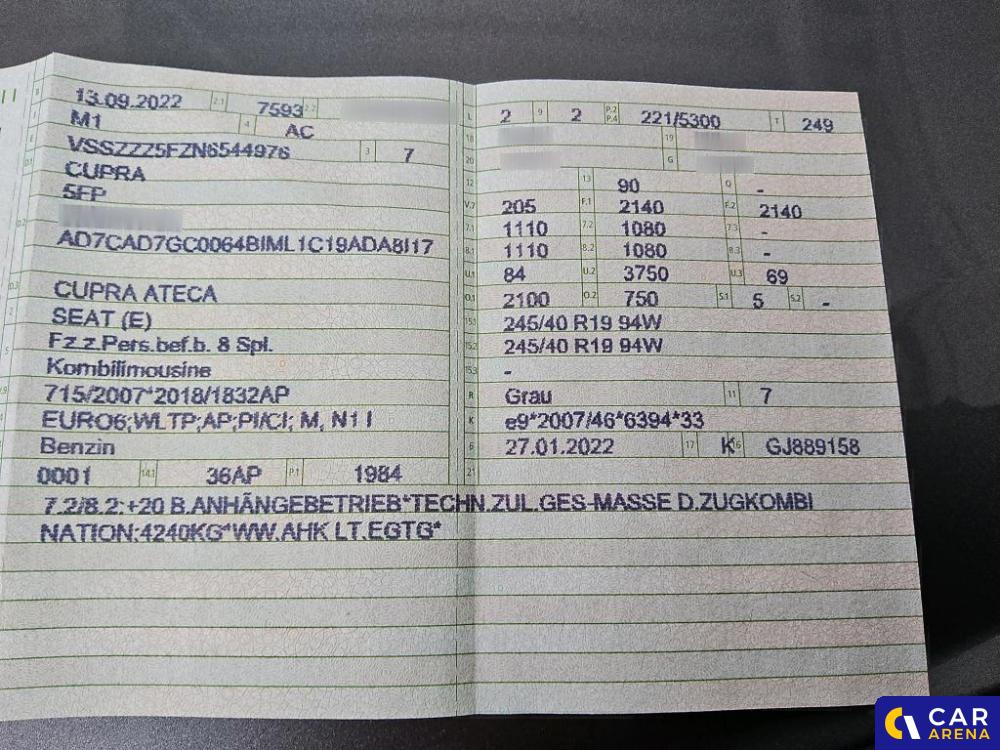 B 13.09.2022 2.1 7593 2.2
J M1 4 AC
E VSSZZZ5FZN6544976 3 7
D.1 CUPRA
5FP
D.2
AD7CAD7GC0064BIML1C19ADA8I17
D.3 CUPRA ATECA
2 SEAT (E)
5 Fz.z.Pers.bef.b. 8 Spl.
Kombilimousine
V.9 715/2007*2018/1832AP
14 EURO6;WLTP;AP;PI/CI; M, N1 I
Benzin
0001 14.1 36AP P.1 1984
L 2 9 2 P.2 P.4 221/5300 T 249
18 19
20 G
12 13 90 Q -
V.7 205 F.1 2140 F.2 2140
7.1 1110 7.2 1080 7.3 -
8.1 1110 8.2 1080 8.3 -
U.1 84 U.2 3750 U.3 69
O.1 2100 O.2 750 S.1 5 S.2 -
15.1 245/40 R19 94W
15.2 245/40 R19 94W
15.3 -
R Grau 11 7
K e9*2007/46*6394*33
6 27.01.2022 17 K 16 GJ889158
21
7.2/8.2:+20 B.ANHÄNGEBETRIEB*TECHN.ZUL.GES-MASSE D.ZUGKOMBI
NATION:4240KG*WW.AHK LT.EGTG*
CAR
ARENA